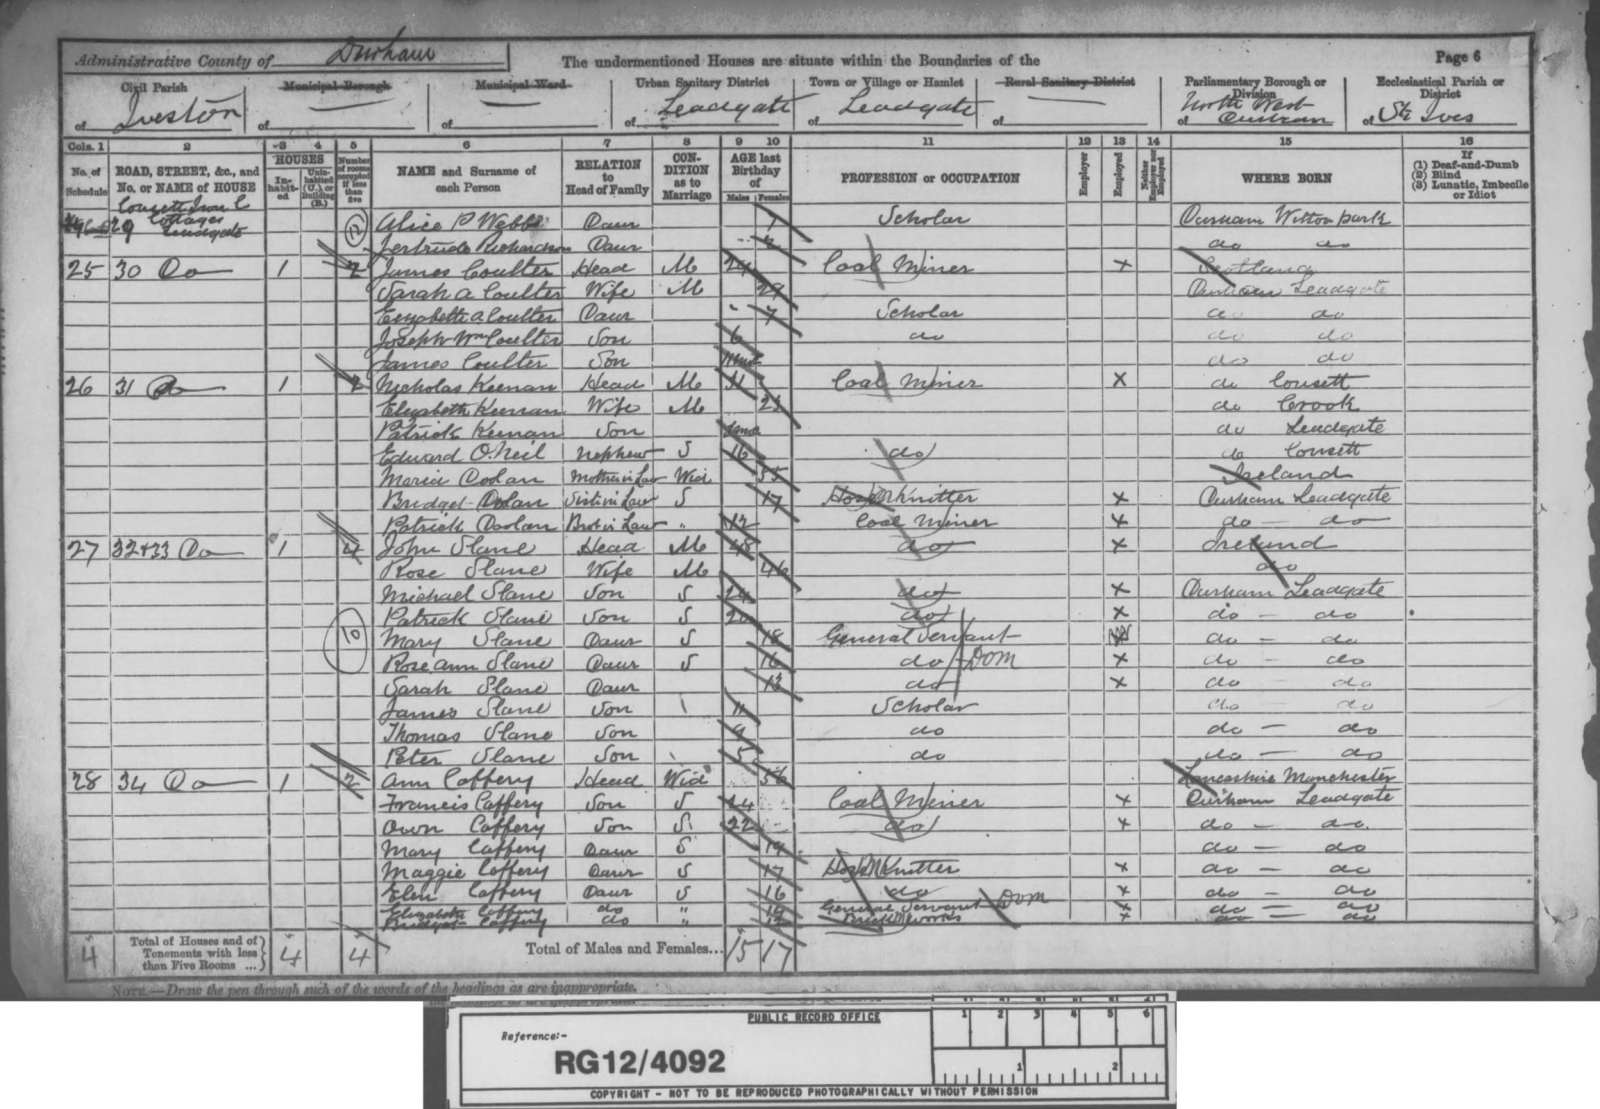 Administrative County of Durham The undermentioned Houses are situate within the Boundaries of the Page 6
Civil Parish Municipal Borough Municipal Ward Urban Sanitary District Town or Village or Hamlet Rural Sanitary District Parliamentary Borough or Division Ecclesiastical Parish or District
of Iveston of of of Leadgate of Leadgate of of North West Durham of St Ives
Cols. 1 2 3 4 5 6 7 8 9 10 11 12 13 14 15 16
No. of Schedule ROAD, STREET, &c., and No. or NAME of HOUSE HOUSES In-habit-ed Unin-habited (U.) or Building (B.) Number of rooms occupied if less than five NAME and Surname of each Person RELATION to Head of Family CON-DITION as to Marriage AGE last Birthday of Males Females PROFESSION or OCCUPATION Employer Employed Neither Employer nor Employed WHERE BORN If (1) Deaf-and-Dumb (2) Blind (3) Lunatic, Imbecile or Idiot
Consett Iron C
29 Cottages Leadgate 12 Alice P Webb Daur 7 Scholar Durham Witton park
Gertrude Richardson Daur do do
25 30 Do 1 2 James Coulter Head M 29 Coal Miner x Scotland
Sarah A Coulter Wife M 29 Durham Leadgate
Elizabeth A Coulter Daur 7 Scholar do do
Joseph Wm Coulter Son 6 do do do
James Coulter Son do do
26 31 Do 1 2 Nicholas Keenan Head M 31 Coal Miner x do Consett
Elizabeth Keenan Wife M do Crook
Patrick Keenan Son do Leadgate
Edward O.Neil Nephew S 16 do do Consett
Maria Doolan Mother in Law Wid 55 Ireland
Bridget Doolan Sist in Law S 17 Knitter x Durham Leadgate
Patrick Doolan Brot in Law " 12 Coal Miner x do do
27 32+33 Do 1 4 John Slane Head M 48 do x Ireland
Rose Slane Wife M 46 do
Michael Slane Son S 24 do x Durham Leadgate
Patrick Slane Son S 20 do x do do
10 Mary Slane Daur S 18 General Servant x do do
Rose ann Slane Daur S 16 do Dom x do do
Sarah Slane Daur 13 do x do do
James Slane Son 11 Scholar do do
Thomas Slane Son 9 do do do
Peter Slane Son 5 do do do
28 34 Do 1 2 Ann Caffery Head Wid 56 Lancashire Manchester
Francis Caffery Son S 24 Coal Miner x Durham Leadgate
Own Caffery Son S 22 do x do do
Mary Caffery Daur S 19 do do
Maggie Caffery Daur S 17 Knitter x do do
Elen Caffery Daur S 16 do x do do
Elizabeth Caffery do " 14 General Servant Dom x do do
Bridget Caffery do " 12 Brick works x do do
4 Total of Houses and of Tenements with less than Five Rooms ... 4 4 Total of Males and Females... 15 17
NOTE.—Draw the pen through such of the words of the headings as are inappropriate.
PUBLIC RECORD OFFICE
1 2 3 4 5 6
Reference:-
RG12/4092
1 2
COPYRIGHT - NOT TO BE REPRODUCED PHOTOGRAPHICALLY WITHOUT PERMISSION